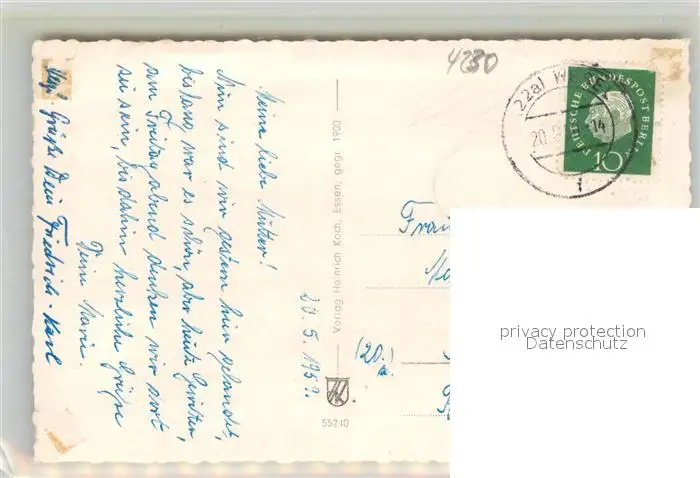 Meine liebe Mutter!
Nun sind wir gestern hier gelandet,
bislang war es schön, aber heute Gewitter,
am Freitagabend denken wir dort
zu sein, bis dahin herzliche Grüße
Deine Marie.
Grüße Dein Friedrich-Karl
20. 5. 1959.
Verlag Heinrich Koch, Essen, gegr. 1900
55240
4230
22a
20
14
DEUTSCHE BUNDESPOST BERLIN
10
Frau
(20.)
privacy protection
Datenschutz